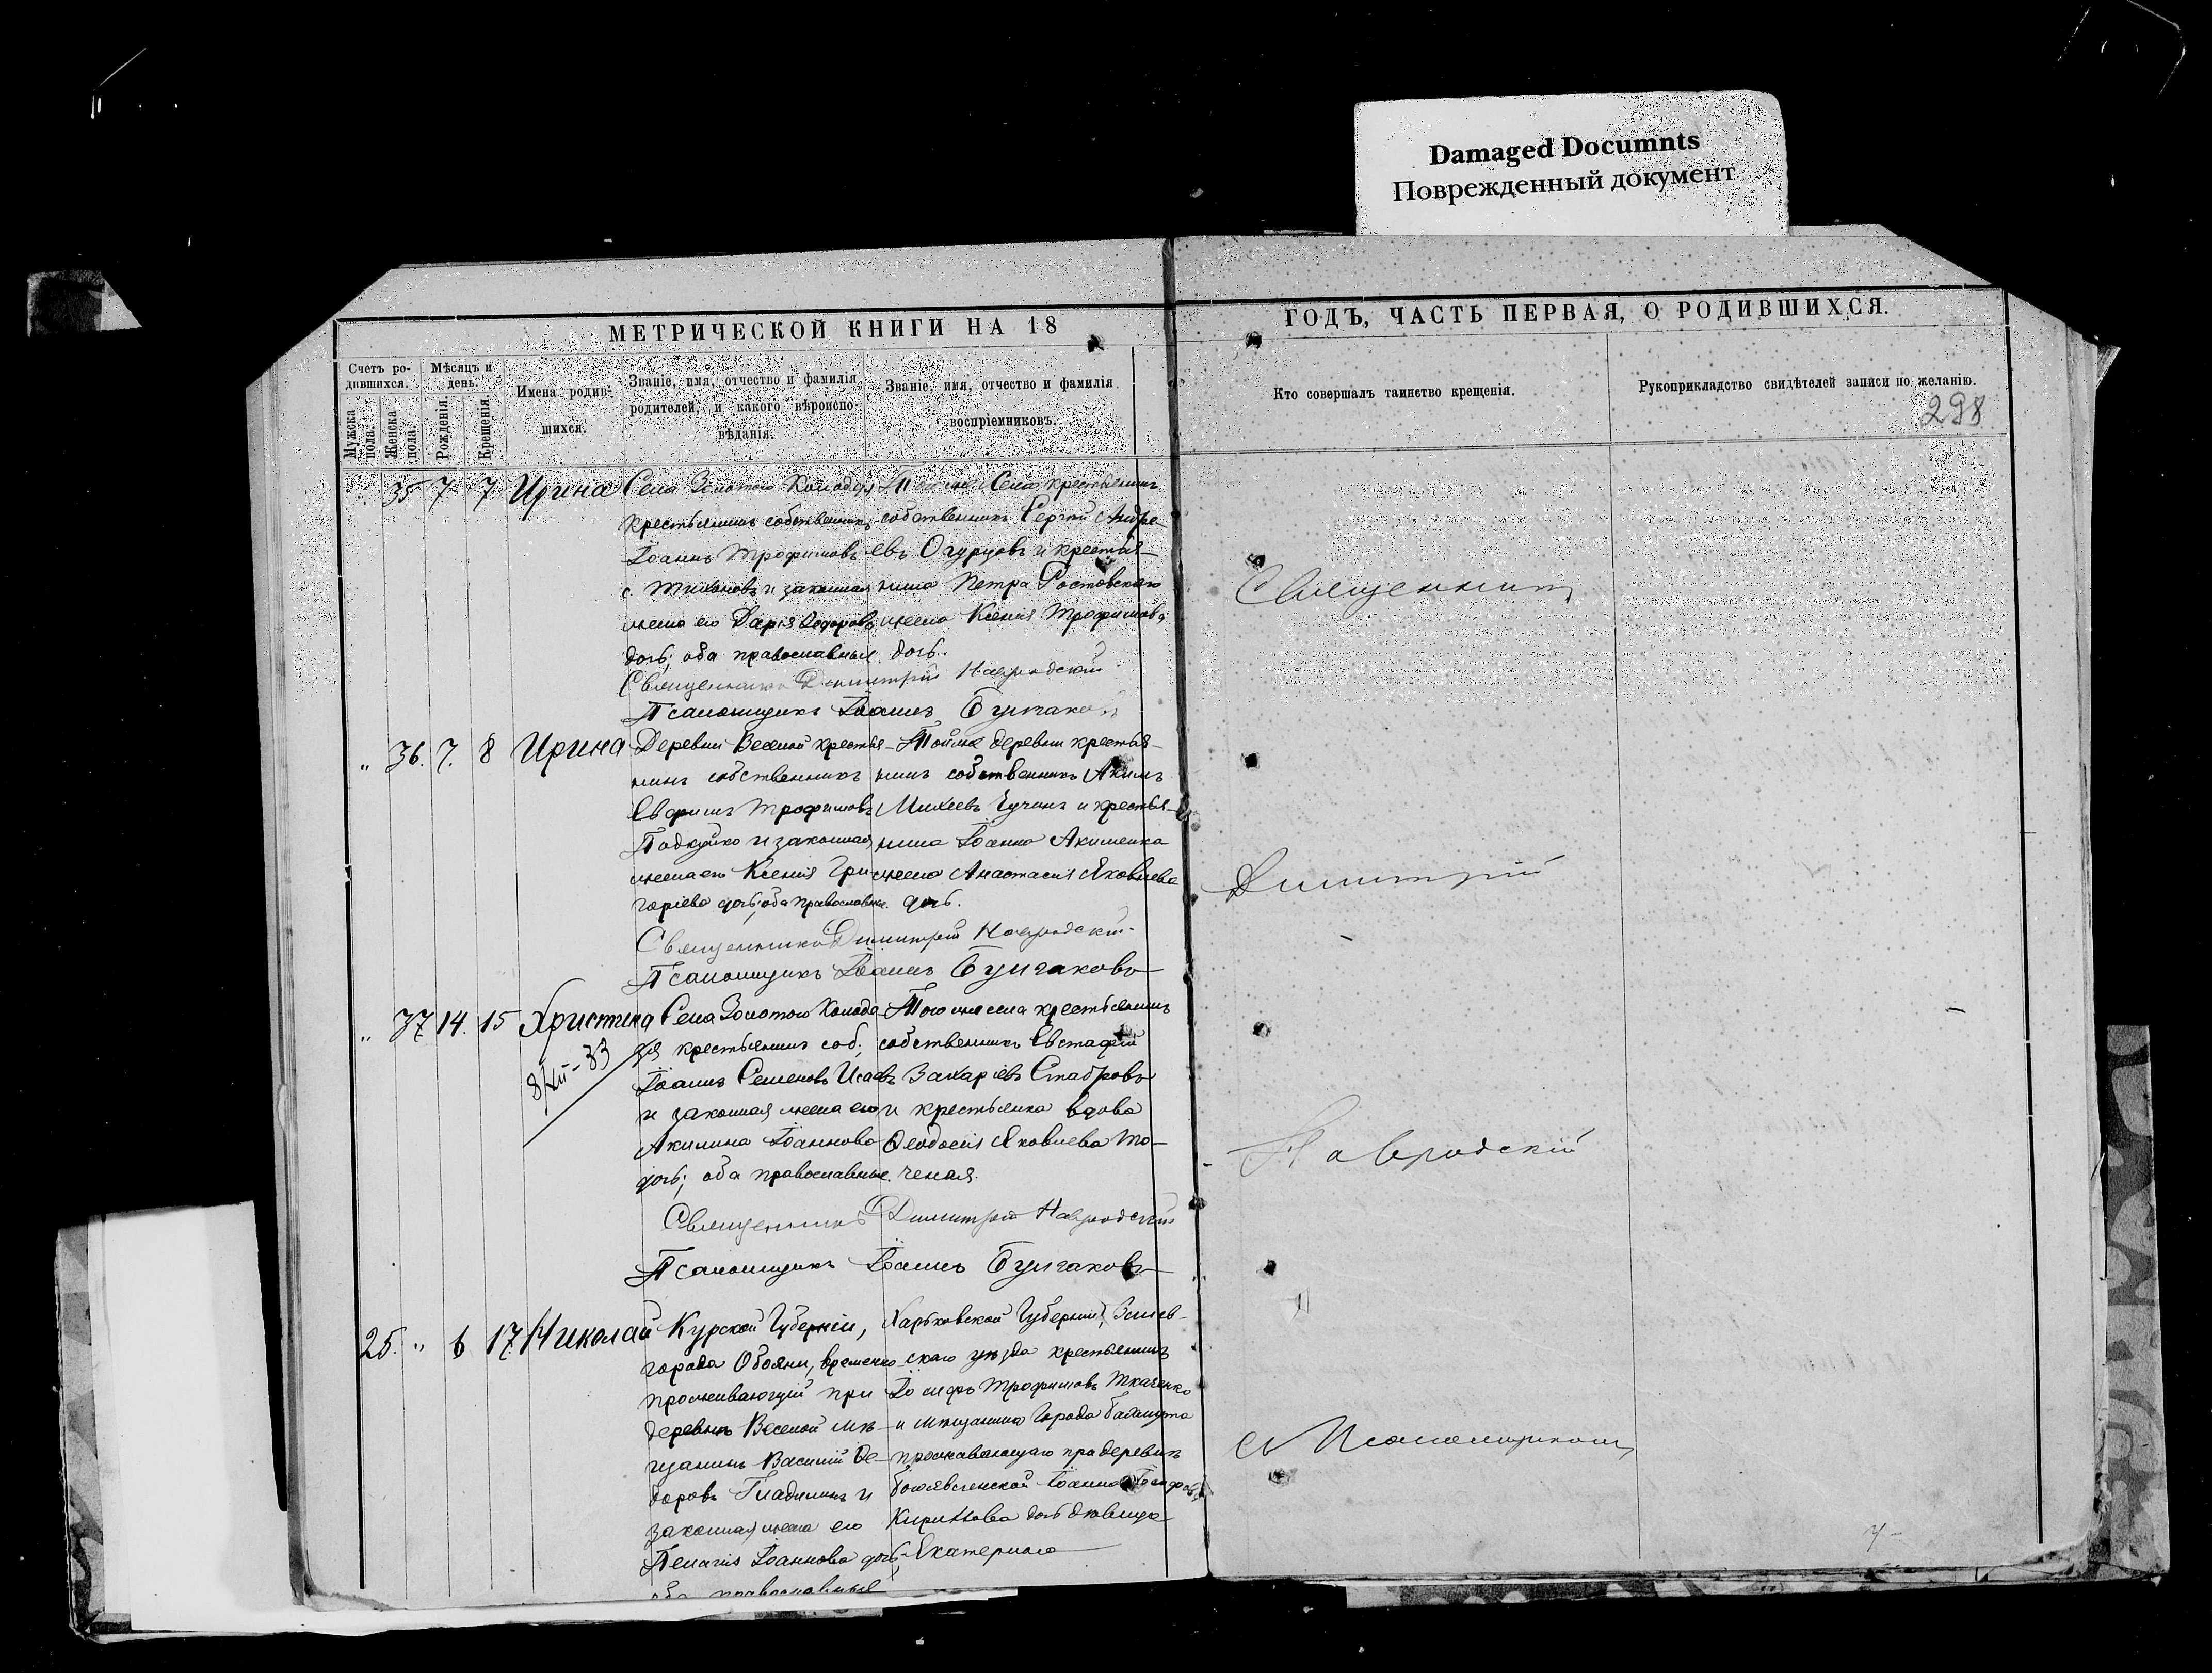 Damaged Documnts
Поврежденный документ
МЕТРИЧЕСКОЙ КНИГИ НА 18
ГОДЪ, ЧАСТЬ ПЕРВАЯ, О РОДИВШИХСЯ.
Счетъ ро-
дившихся.
Мужска
пола.
Женска
пола.
Мѣсяцъ и
день.
Рожденія.
Крещенія.
Имена родив-
шихся.
Званіе, имя, отчество и фамилія
родителей, и какого вѣроиспо-
вѣданія.
Званіе, имя, отчество и фамилія
воспріемниковъ.
Кто совершалъ таинство крещенія.
Рукоприкладство свидѣтелей записи по желанію.
298
35 7 7 Ирина
Села Золотого Колодезя
крестьянинъ собственникъ
Іоаннъ Трофимовъ
с. Тихоновъ и законная
жена его Дарія Ѳедорова
дочь; оба православные.
Того же Села крестьянинъ
собственникъ Сергѣй Андре-
евъ Огурцовъ и крестья-
нина Петра Ростовскаго
жена Ксенія Трофимова
дочь.
Священникъ Димитрій Навродскій
Псаломщикъ Іоаннъ Булгаковъ
„ 36. 7. 8 Ирина
Деревни Веселой крестья-
нинъ собственникъ
Евфимъ Трофимовъ
и законная
жена его Ксенія Гри-
горіева дочь; оба православные.
Той же деревни крестья-
нинъ собственникъ Акимъ
Михеевъ и крестья-
нина Іоанна Акименка
жена Анастасія Яковлева
дочь.
Священникъ Димитрій Навродскій
Псаломщикъ Іоаннъ Булгаковъ
„ 37 14. 15 Христина
8/XII-33
Села Золотого Колоде-
зя крестьянинъ соб.
Іоаннъ Семеновъ Исаевъ
и законная жена его
Акилина Іоаннова
дочь; оба православные.
Того же села крестьянинъ
собственникъ Евстафій
Захаріевъ Стабровъ
и крестьянка вдова
Ѳеодосія Яковлева То-
ченая.
Священникъ Димитрій Навродскій
Псаломщикъ Іоаннъ Булгаковъ
25. „ 6 17 Николай
Курской Губерніи,
города Обояни, временно
проживающій при
деревнѣ Веселой мѣ-
щанинъ Василій Ѳе-
доровъ Гладилинъ и
законная жена его
Пелагія Іоаннова дочь,
оба православные
Харьковской Губерніи, Зміев-
скаго уѣзда крестьянинъ
Іосифъ Трофимовъ Ткаченко
и мѣщанина Города Бахмута
проживающаго при деревнѣ
Іоанна
дочь дѣвица
Екатерина
Священникъ
Димитрій
Навродскій
съ Псаломщикомъ